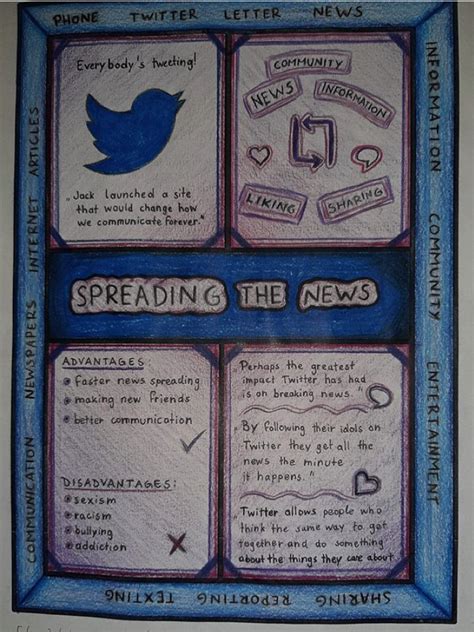 PHONE TWITTER LETTER NEWS
INFORMATION COMMUNITY ENTERTAINMENT
Everybody's tweeting!
„Jack launched a site
that would change how
we communicate forever."
COMMUNITY
NEWS
INFORMATION
LIKING
SHARING
SPREADING THE NEWS
ADVANTAGES:
faster news spreading
making new friends
better communication
DISADVANTAGES:
sexism
racism
bullying
addiction
„Perhaps the greatest
impact Twitter has had
is on breaking news."
„By following their idols on
Twitter they get all the
news the minute
it happens."
„Twitter allows people who
think the same way to get
together and do something
about the things they care about.
SHARING REPORTING TEXTING
COMMUNICATION NEWSPAPERS INTERNET ARTICLES